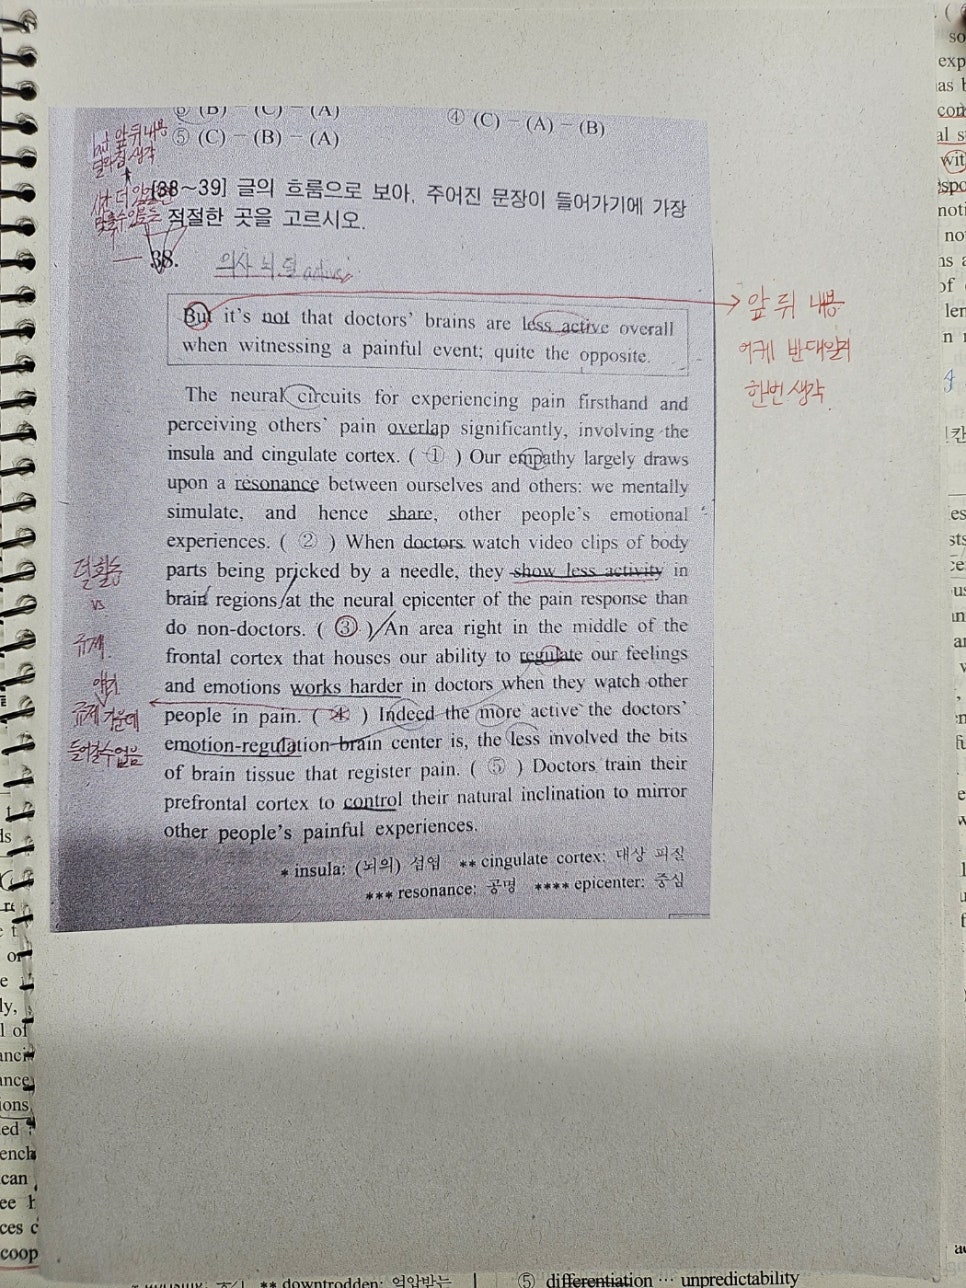 (B) － (C) － (A)
④ (C) － (A) － (B)
⑤ (C) － (B) － (A)
but 앞뒤내용
[38～39] 글의 흐름으로 보아, 주어진 문장이 들어가기에 가장
적절한 곳을 고르시오.
38.
의사 뇌 덜
But it's not that doctors' brains are less active overall
when witnessing a painful event; quite the opposite.
앞 뒤 내용
어케 반대일지
한번 생각
The neural circuits for experiencing pain firsthand and
perceiving others' pain overlap significantly, involving the
insula and cingulate cortex. ( ① ) Our empathy largely draws
upon a resonance between ourselves and others: we mentally
simulate, and hence share, other people's emotional
experiences. ( ② ) When doctors watch video clips of body
parts being pricked by a needle, they show less activity in
brain regions at the neural epicenter of the pain response than
do non-doctors. ( ③ ) An area right in the middle of the
frontal cortex that houses our ability to regulate our feelings
and emotions works harder in doctors when they watch other
people in pain. ( ④ ) Indeed the more active the doctors'
emotion-regulation brain center is, the less involved the bits
of brain tissue that register pain. ( ⑤ ) Doctors train their
prefrontal cortex to control their natural inclination to mirror
other people's painful experiences.
덜 활동
vs
규제
규제 가운데
들어갈수없음
* insula: (뇌의) 섬엽 ** cingulate cortex: 대상 피질
*** resonance: 공명 **** epicenter: 중심
** downtrodden: 억압받는
⑤ differentiation ··· unpredictability